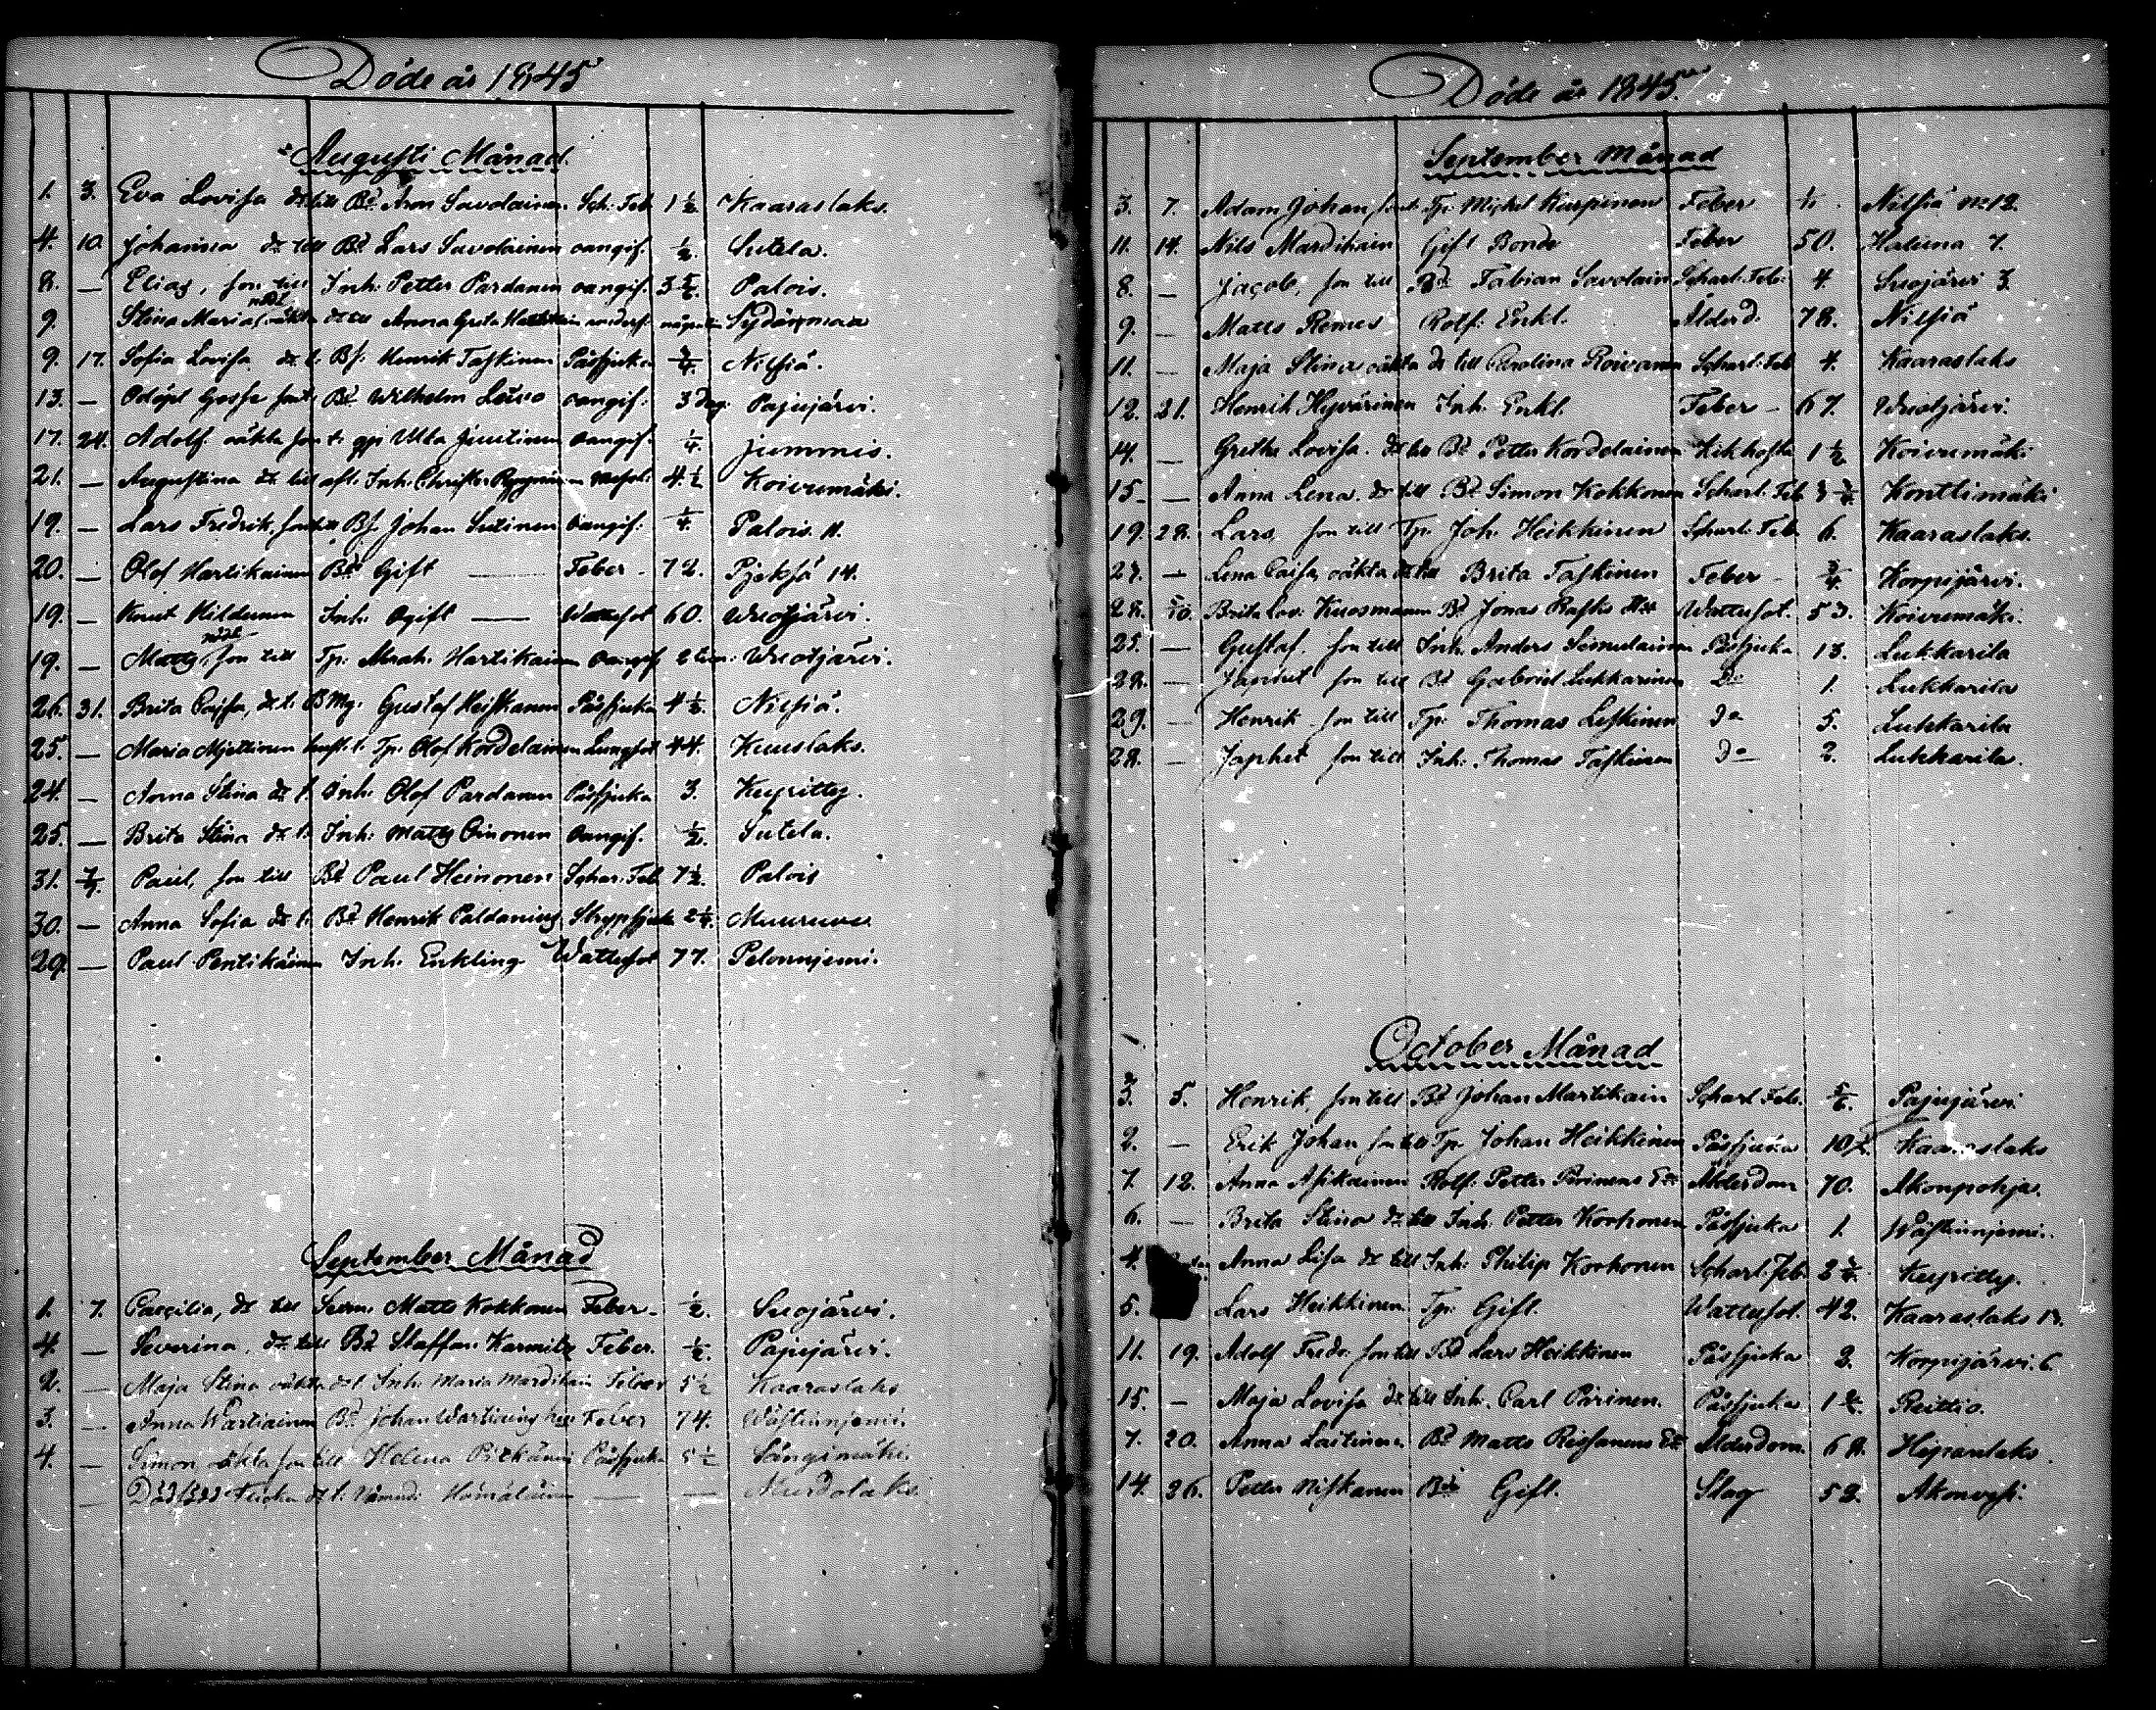 Döde år 1845
Augusti Månad.
1. 3. Eva Lovisa dr till Bd. Aron Savolainen. Sch: Feb. 1 1/2 Kaaraslaks.
4. 10. Johanna dr till Bd Lars Savolainen oangif. 1/2. Sutela.
8. — Elias, son till Inh: Petter Pardanen oangif. 3 5/12. Palois.
nödt
9. Stina Maria, oäkta dr till Anna Greta Sydänmaa
9. 17. Sofia Lovisa. dr t. Bs. Henrik Taskinen Påssjuka 3/4. Nilsiä.
13. — Gosse son t. Bd. Wilhelm oangif: 3 dag. Pajujärvi.
17. 24. Adolf oäkta son t. Ulla Juutinen oangif. 1/4 Jummis.
21. — Augustina dr till afl. Inh: Christer 4 1/2 Koivumäki.
19. — Lars Fredrik, son till Bs. Johan Sutinen oangif: 1/4. Palois 11.
20. — Olof Hartikainen Bd. Gift — Feber - 72. Pjeksä 14.
19. — Knut Hildunen Inh: Ogift — Wattusot 60. Wuotjärvi.
nödt
19. — Matts, son till Tp: Abrah. Hartikainen oangif. 2 tim: Wuotjärvi.
26. 31. Brita Cajsa, dr t. BMg. Gustaf Heiskanen Påssjuka 4 1/2. Nilsiä.
25. — Maria Mjettinen hust. t. Tp: Olof Kordelainen Lungsot 44. Kuuslaks.
24. — Anna Stina dr t. Inh: Olof Pardanen Påssjuka 3. Kuyritty.
25. — Brita Stina dr t. Inh: Matts Oinonen oangif. 1/2. Sutela.
31. 7/9. Paul, son till Bd Paul Heinonen Schar: Feb. 7 1/2. Palois
30. — Anna Sofia dr t. Bd Henrik Paldanius Strypsjuka 2 1/4. Muuruve.
29. — Paul Pentikäinen Inh. Enkling Wattusot 77. Pelonnjemi.
September Månad
1. 7. Caecilia, dr till Matts Kokkonen Feber - 1/2. Suojärvi.
4. — Severina, dr till Bd Staffan Karmitz Feber. 1/2. Pajujärvi.
2. — Maja Stina oäkta dr t. Inh: Maria Mardikain Feber 5 1/2 Kaaraslaks
3. — Anna Wartiainen Bd: Johan Wartiains Feber 74. Wästinnjemi.
4. — Simon oäkta son till Helena Påssjuka 5 1/2 Sängimäki.
— Dödfödd flicka dr t. Hämäläinen — — Murdolaks
Döde år 1845.
September Månad
3. 7. Adam Johan, son t. Tp: Michel Karpinen Feber Nilsiä No 12.
11. 14. Nils Mardikain Gift Bonde Feber 50. Haluna 7.
8. — Jacob, son till Bd Fabian Savolain Scharl: Feb: 4. Suojärvi 3.
9. — Matts Remes Rotf: Enkl. Ålderd. 78. Nilsiä
11. — Maja Stina oäkta dr till Carolina Roivanen Scharl: Feb 4. Kaaraslaks
12. 21. Henrik Hyvärinen Inh: Enkl. Feber - 67. Wuotjärvi.
14. — Greta Lovisa. dr till Bd Petter Kordelainen Kikhosta 1 1/2 Koivumäki
15. — Anna Lena. dr till Bd Simon Kokkonen Scharl: Feb 3 3/4. Konttimäki
19. 28. Lars, son till Tp. Joh: Heikkinen Scharl: Feb. 6. Kaaraslaks.
27. — Lena Caisa, oäkta dr till Brita Taskinen Feber - 3/4. Korpijärvi.
28. 5/10. Brita Lov: Kuosmanen Bd Jonas Rasks Wattusot. 53. Koivumäki.
25. — Gustaf, son till Inh: Anders Simulainen Påssjuka 13. Lukkarila
28. — Japhet son till Bd Gabriel Lukkarinen Do 1. Lukkarila
29. — Henrik son till Tp: Thomas Leskinen Do 5. Lukkarila
28. — Japhet son till Inh: Thomas Taskinen Do 2. Lukkarila.
October Månad
3. 5. Henrik, son till Bd Johan Martikain Scharl. Feb. 5/6. Pajujärvi
2. — Erik Johan son till Tp: Johan Heikkinen Påssjuka Kaaraslaks
7. 12. Anna Asikainen Rotf: Petter Pirinens Ea Ålderdom 70. Akonpohja.
6. — Brita Stina dr till Inh: Petter Korhonen Påssjuka 1. Wästinnjemi.
4. Anna Lisa dr till Inh: Philip Korhonen Scharl: Feb. 2 3/4. Kuyritty.
5. Lars Heikkinen Tp: Gift. Wattusot. 42. Kaaraslaks 13.
11. 19. Adolf Fredr: son till Bd Lars Heikkinen Påssjuka 2. Korpijärvi 6
15. — Maja Lovisa dr till Inh. Carl Pirinen. Påssjuka Reittio.
7. 20. Anna Laitinen Bd Matts Rissanens Ea Ålderdom. 68. Hipanlaks.
14. 26. Petter Niskanen Bd Gift. Slag 52. Akonvesi.